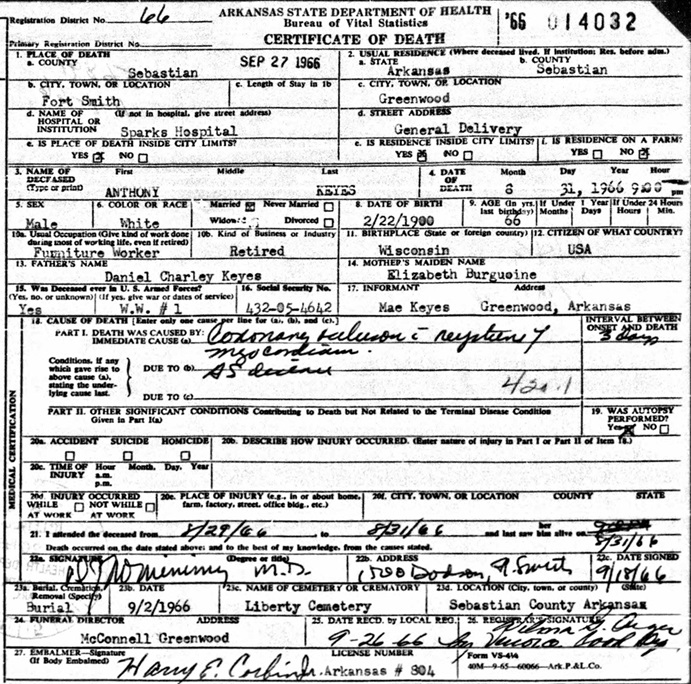 Registration District No. 66
ARKANSAS STATE DEPARTMENT OF HEALTH
Bureau of Vital Statistics
'66 014032
Primary Registration District No.
CERTIFICATE OF DEATH
1. PLACE OF DEATH
a. COUNTY
Sebastian
SEP 27 1966
2. USUAL RESIDENCE (Where deceased lived. If institution: Res. before adm.)
a. STATE b. COUNTY
Arkansas Sebastian
b. CITY, TOWN, OR LOCATION c. Length of Stay in 1b
Fort Smith
c. CITY, TOWN, OR LOCATION
Greenwood
d. NAME OF (If not in hospital, give street address)
HOSPITAL OR
INSTITUTION Sparks Hospital
d. STREET ADDRESS
General Delivery
e. IS PLACE OF DEATH INSIDE CITY LIMITS?
YES X NO
e. IS RESIDENCE INSIDE CITY LIMITS? f. IS RESIDENCE ON A FARM?
YES X NO YES NO X
3. NAME OF First Middle Last
DECEASED
(Type or print) ANTHONY KEYES
4. DATE Month Day Year Hour
OF
DEATH 8 31, 1966 9:00 pm
5. SEX 6. COLOR OR RACE Married X Never Married 8. DATE OF BIRTH 9. AGE (In yrs. If Under 1 Year If Under 24 Hours
Male White Widow Divorced 2/22/1900 last birthday) Months Days Hours Min.
66
10a. Usual Occupation (Give kind of work done 10b. Kind of Business or Industry
during most of working life, even if retired)
Furniture Worker Retired
11. BIRTHPLACE (State or foreign country) 12. CITIZEN OF WHAT COUNTRY?
Wisconsin USA
13. FATHER'S NAME
Daniel Charley Keyes
14. MOTHER'S MAIDEN NAME
Elizabeth Burguoine
15. Was Deceased ever in U. S. Armed Forces? 16. Social Security No.
(Yes, no, or unknown) (If yes, give war or dates of service)
Yes W.W. # 1 432-05-4642
17. INFORMANT Address
Mae Keyes Greenwood, Arkansas
MEDICAL CERTIFICATION
18. CAUSE OF DEATH [Enter only one cause per line for (a), (b), and (c).]
INTERVAL BETWEEN
ONSET AND DEATH
PART I. DEATH WAS CAUSED BY:
IMMEDIATE CAUSE (a) Coronary occlusion
3 days
myocardium
Conditions, if any
which gave rise to
above cause (a),
stating the under-
lying cause last.
DUE TO (b) AS disease
420.1
DUE TO (c)
PART II. OTHER SIGNIFICANT CONDITIONS Contributing to Death but Not Related to the Terminal Disease Condition
Given in Part I(a)
19. WAS AUTOPSY
PERFORMED?
Yes X NO
20a. ACCIDENT SUICIDE HOMICIDE
20b. DESCRIBE HOW INJURY OCCURRED. (Enter nature of injury in Part I or Part II of Item 18.)
20c. TIME OF Hour Month, Day, Year
INJURY a.m.
p.m.
20d INJURY OCCURRED
WHILE NOT WHILE
AT WORK AT WORK
20e. PLACE OF INJURY (e.g., in or about home,
farm, factory, street, office bldg., etc.)
20f. CITY, TOWN, OR LOCATION COUNTY STATE
21. I attended the deceased from 8/29/66 to 8/31/66 and last saw her him alive on
8/31/66
Death occurred on the date stated above; and to the best of my knowledge, from the causes stated.
22a. SIGNATURE (Degree or title) 22b. ADDRESS 22c. DATE SIGNED
M.D. 1500 Dodson, 9/18/66
23a. Burial, Cremation, 23b. DATE 23c. NAME OF CEMETERY OR CREMATORY 23d. LOCATION (City, town, or county) (State)
Removal (Specify)
Burial 9/2/1966 Liberty Cemetery Sebastian County Arkansas
24. FUNERAL DIRECTOR ADDRESS
McConnell Greenwood
25. DATE RECD. by LOCAL REG.
9-26-66
26. REGISTRAR'S SIGNATURE
27. EMBALMER—Signature
(If Body Embalmed) Harry E. Corbin Jr.
LICENSE NUMBER
Arkansas # 804
Form VS-4
40M—9-65—60066—Ark.P.&L.Co.